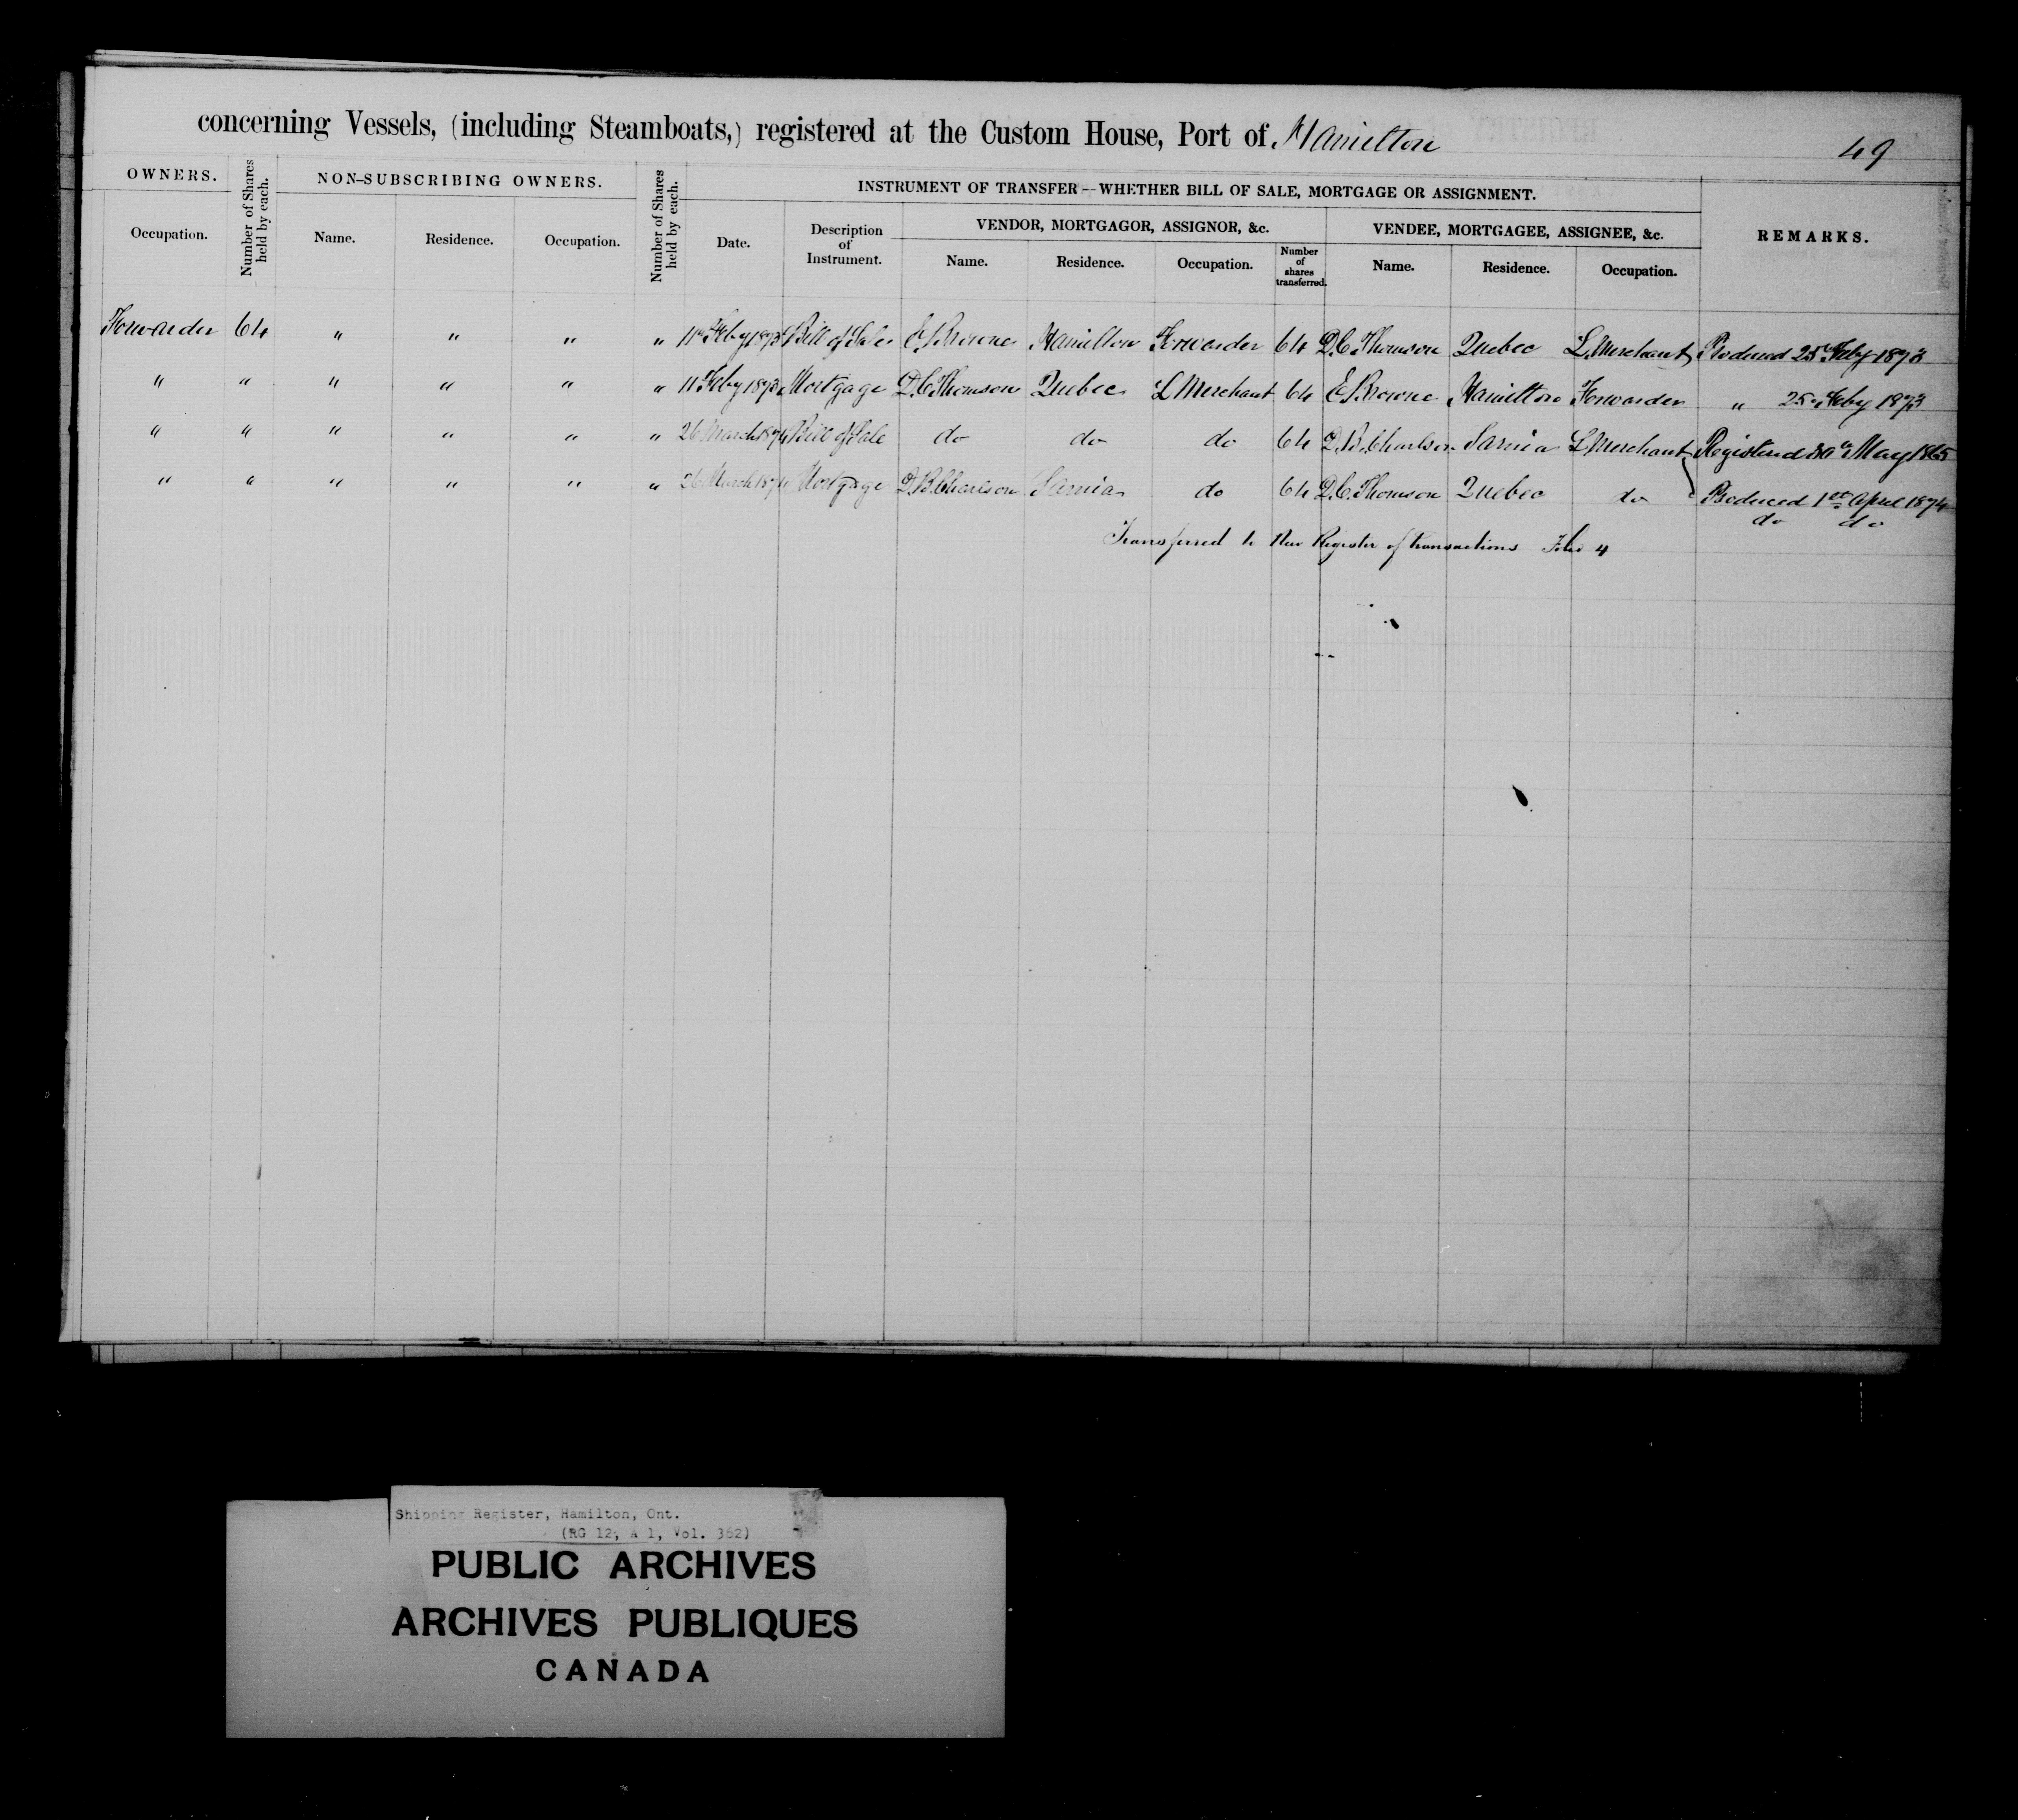 concerning Vessels, (including Steamboats,) registered at the Custom House, Port of Hamilton
49
OWNERS.
Number of Shares held by each.
NON-SUBSCRIBING OWNERS.
Number of Shares held by each.
INSTRUMENT OF TRANSFER--WHETHER BILL OF SALE, MORTGAGE OR ASSIGNMENT.
REMARKS.
VENDOR, MORTGAGOR, ASSIGNOR, &c.
VENDEE, MORTGAGEE, ASSIGNEE, &c.
Occupation. Name. Residence. Occupation. Date. Description of Instrument. Name. Residence. Occupation. Number of shares transferred. Name. Residence. Occupation.
Forwarder 64 " " " " 11th Feby 1873 Bill of Sale E Browne Hamilton Forwarder 64 D.C. Thomson Quebec L. Merchant Produced 25th Feby 1873
" " " " " " 11 Feby 1873 Mortgage D.C. Thomson Quebec L Merchant 64 E Browne Hamilton Forwarder " 25th Feby 1873
" " " " " " 26 March 1874 Bill of Sale do do do 64 D.B. Charlson Sarnia L Merchant Registered May 1865
" " " " " " 26 March 1874 Mortgage D.B. Charlson Sarnia do 64 D.C. Thomson Quebec do Produced 1st April 1874
do do
Transferred to New Register of transactions Folio 4
Shipping Register, Hamilton, Ont.
(RG 12, A 1, Vol. 362)
PUBLIC ARCHIVES
ARCHIVES PUBLIQUES
CANADA